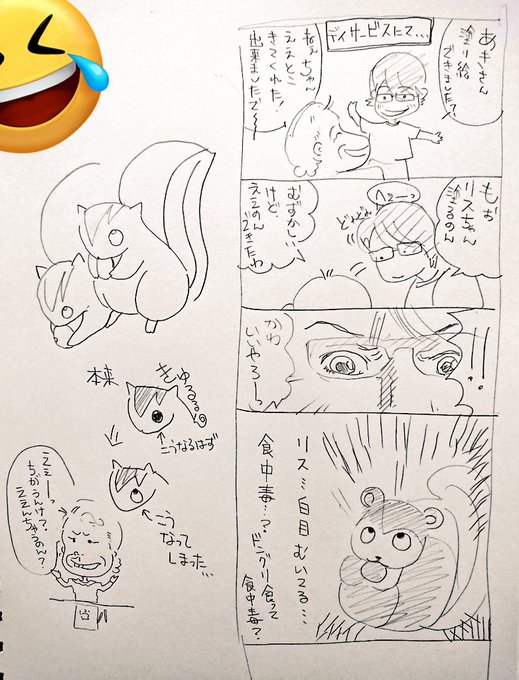 デイサービスにて…
あきさん
塗り絵
できました？
ねぇちゃん
ええとこ
きてくれた！
出来ましたで〜
もぉ
リスちゃん
塗るのん
むずかしい
けど
ええのん
できたわ
へぇーっ
どれどれ
!!
かわ
いいやろー
リス…白目むいてる…
食中毒…？ドングリ食って
食中毒？
本来
きゅるるる
こうなるはず
こう
なって
しまった…
ええーっ
ちがうんけ？
ええんちゃうのん？